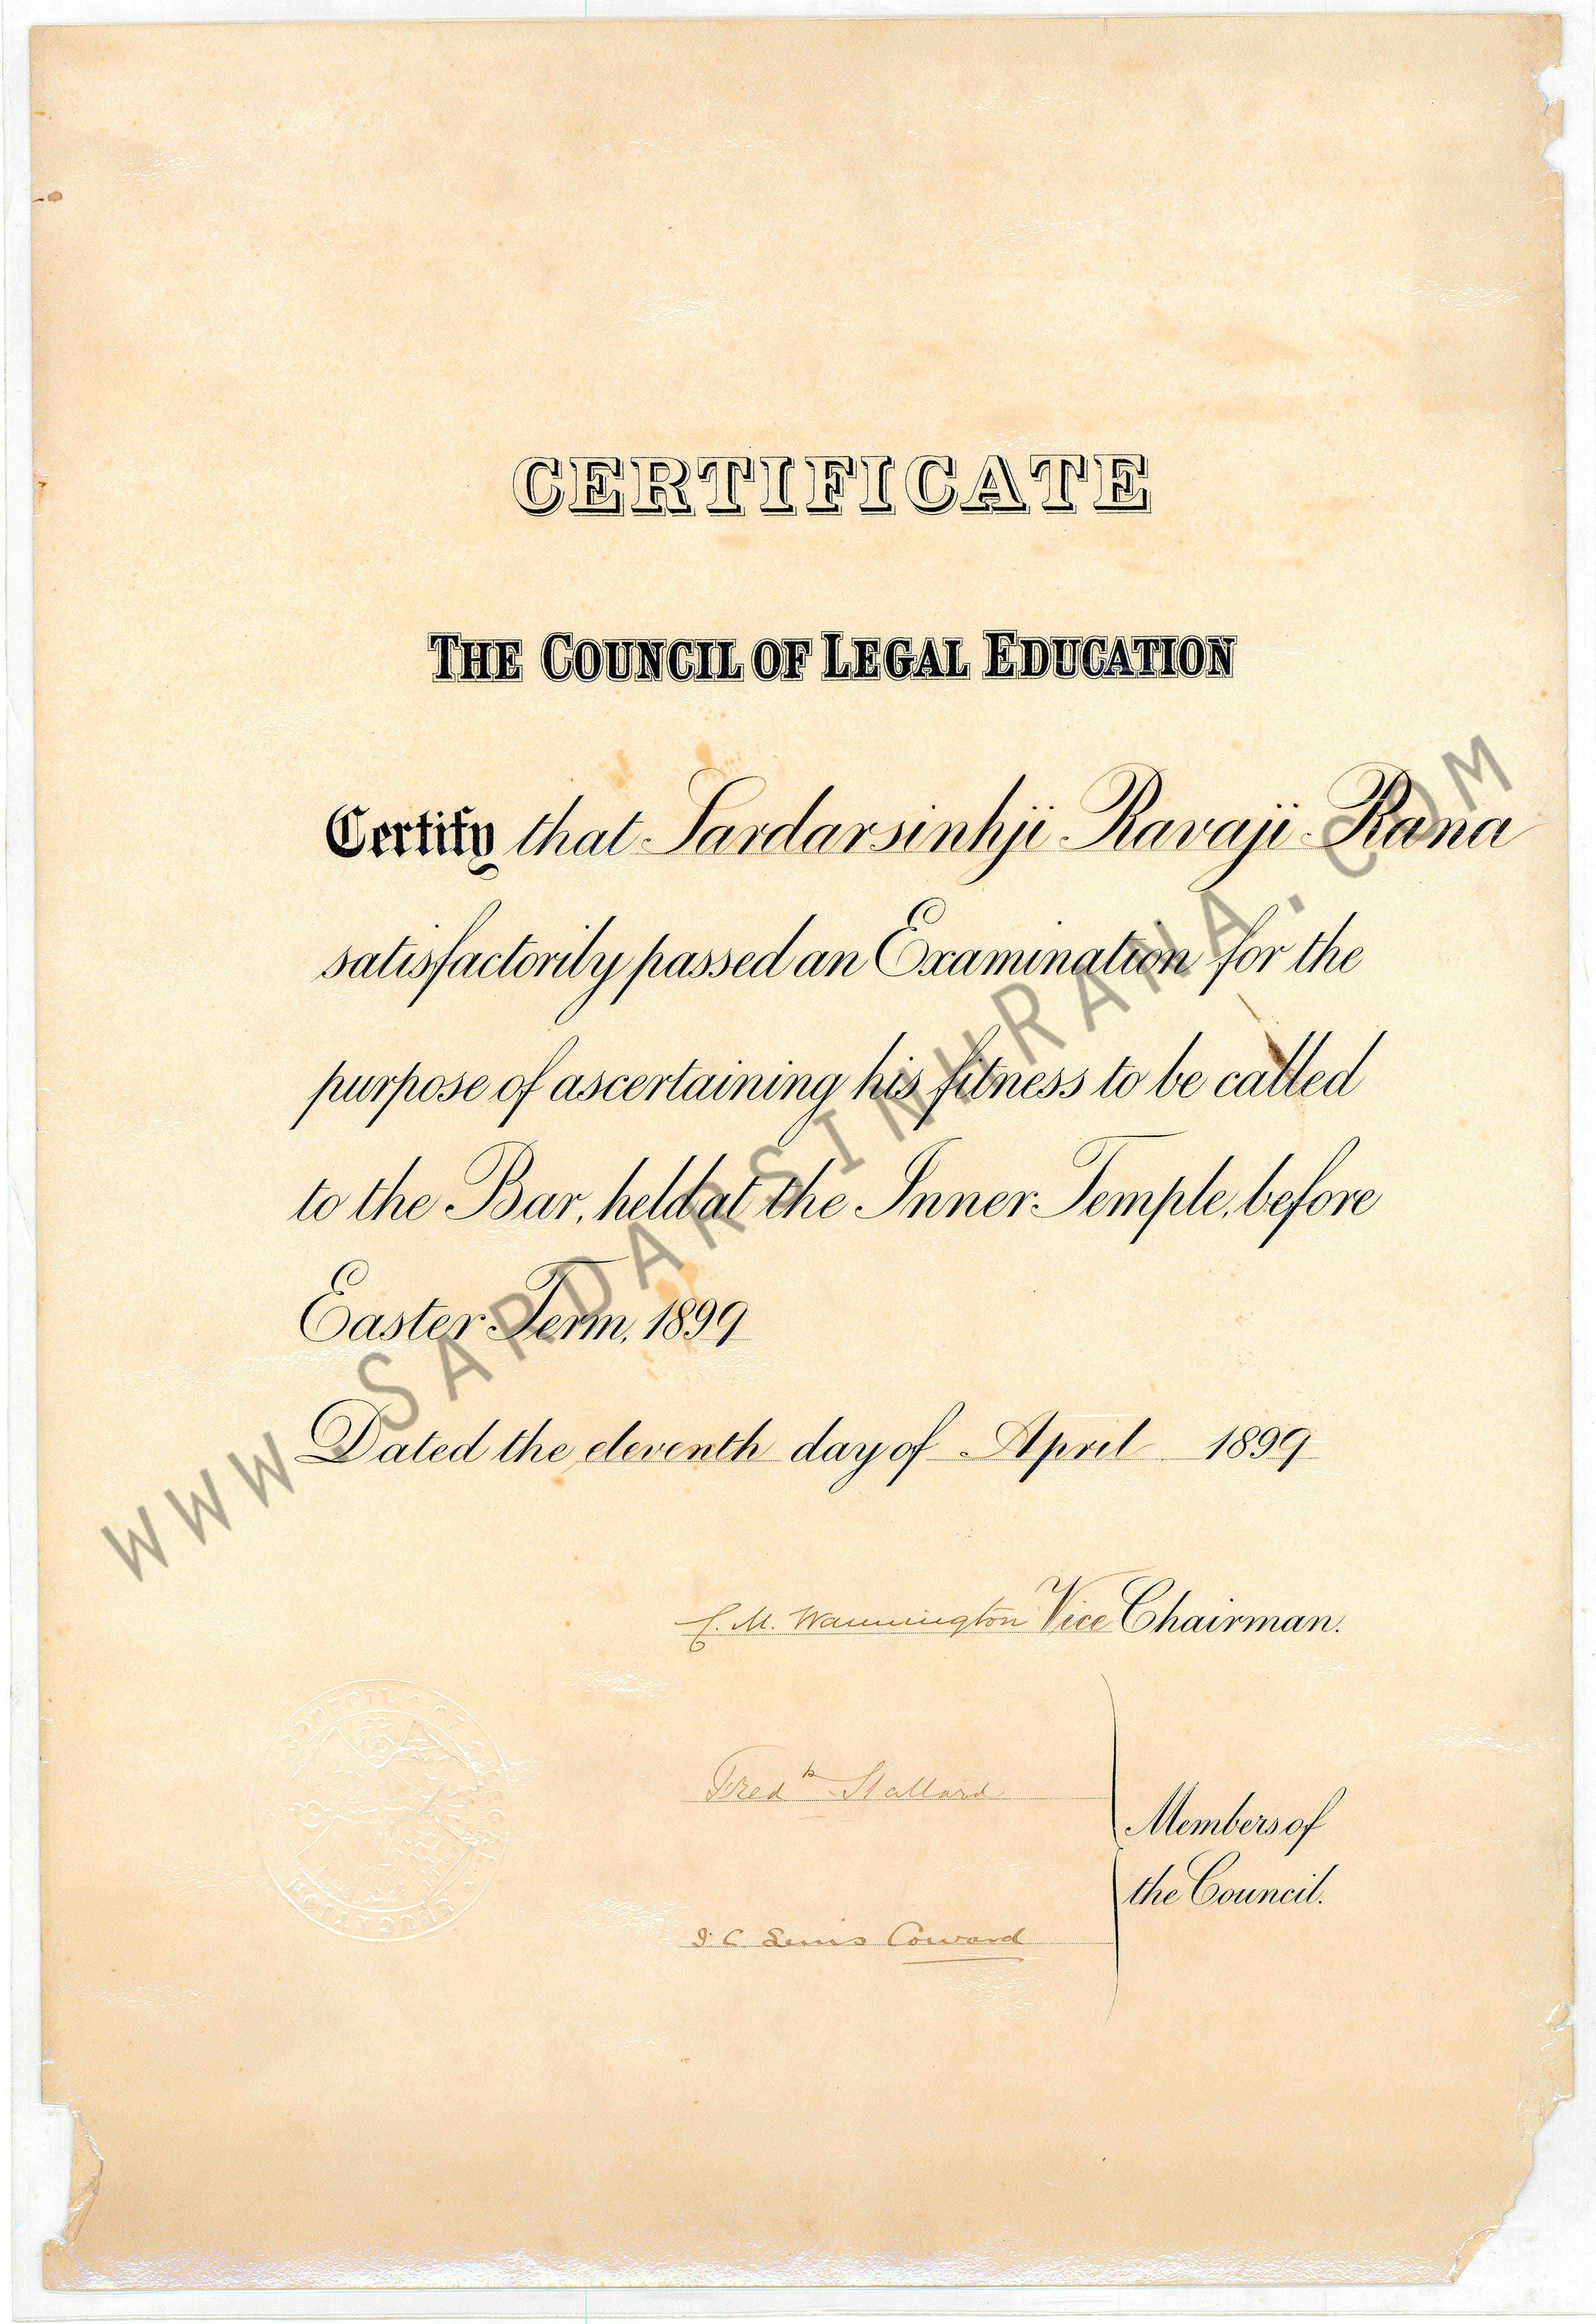 CERTIFICATE
THE COUNCIL OF LEGAL EDUCATION
Certify that Sardarsinhji Ravaji Rana
satisfactorily passed an Examination for the
purpose of ascertaining his fitness to be called
to the Bar, held at the Inner Temple, before
Easter Term, 1899
Dated the eleventh day of April 1899
C. M. Warmington Vice Chairman.
Fredk Stallard
Members of
the Council.
J. C. Lewis Coward
COUNCIL OF LEGAL EDUCATION
WWW.SARDARSINHRANA.COM